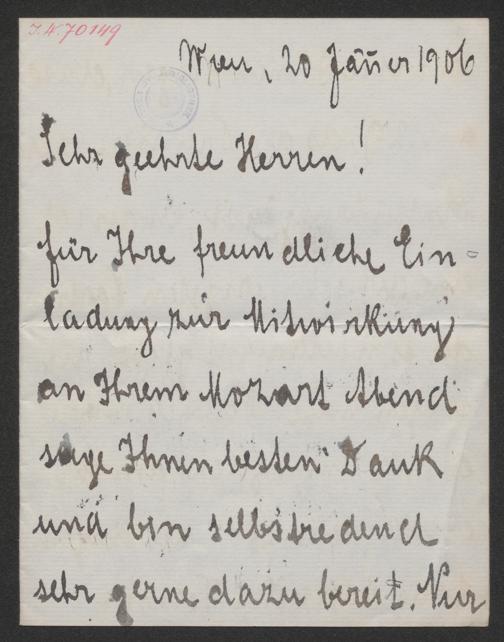 I.N. 70149
Wien, 20 Jäner 1906
Sehr geehrte Herren!
für Ihre freundliche Ein-
ladung zur Mitwirkung
an Ihrem Mozart Abend
sage Ihnen besten Dank
und bin selbstredend
sehr gerne dazu bereit. Nur